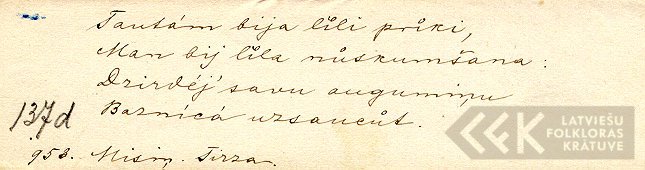 Tautám bija lîli prîki,
Man bij lîla nůskumšana:
Dzirdéj' savu augumiņu
Baznícá uzsaucůt.
137d
953. Misiņ. Tirza.
LATVIEŠU
FOLKLORAS
KRĀTUVE